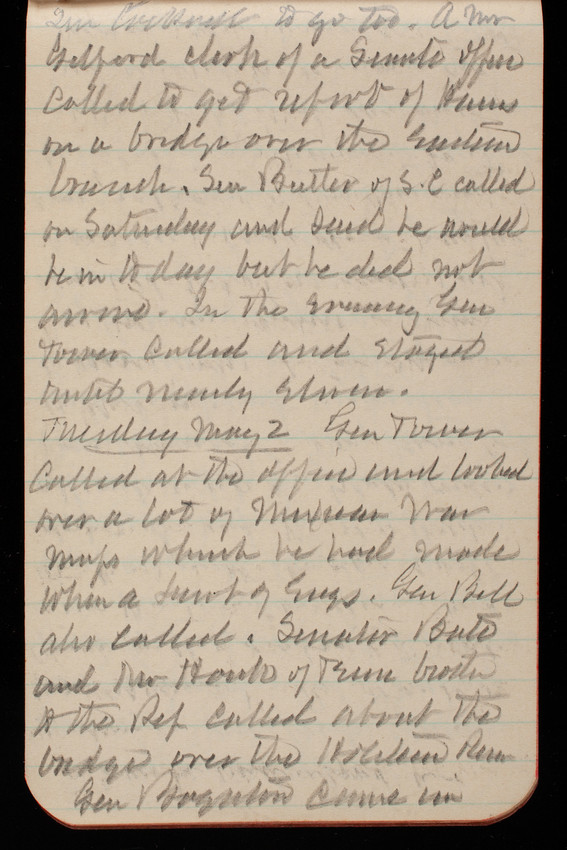 Gen Cockrell to go too. A Mr
Gelford clerk of a Senate office
called to get report of Hains
on a bridge over the Eastern
branch. Gen Butler of S.C called
on Saturday and said he would
be in to day but he did not
arrive. In the evening Gen
Tower called and stayed
until nearly eleven.
Tuesday May 2 Gen Tower
called at the office and looked
over a lot of Mexican War
maps which he had made
when a Lieut of Engs. Gen Bell
also called. Senator Bate
and Mr Houk of Tenn brother
of the Rep called about the
bridge over the Holston River
Gen Boynton came in